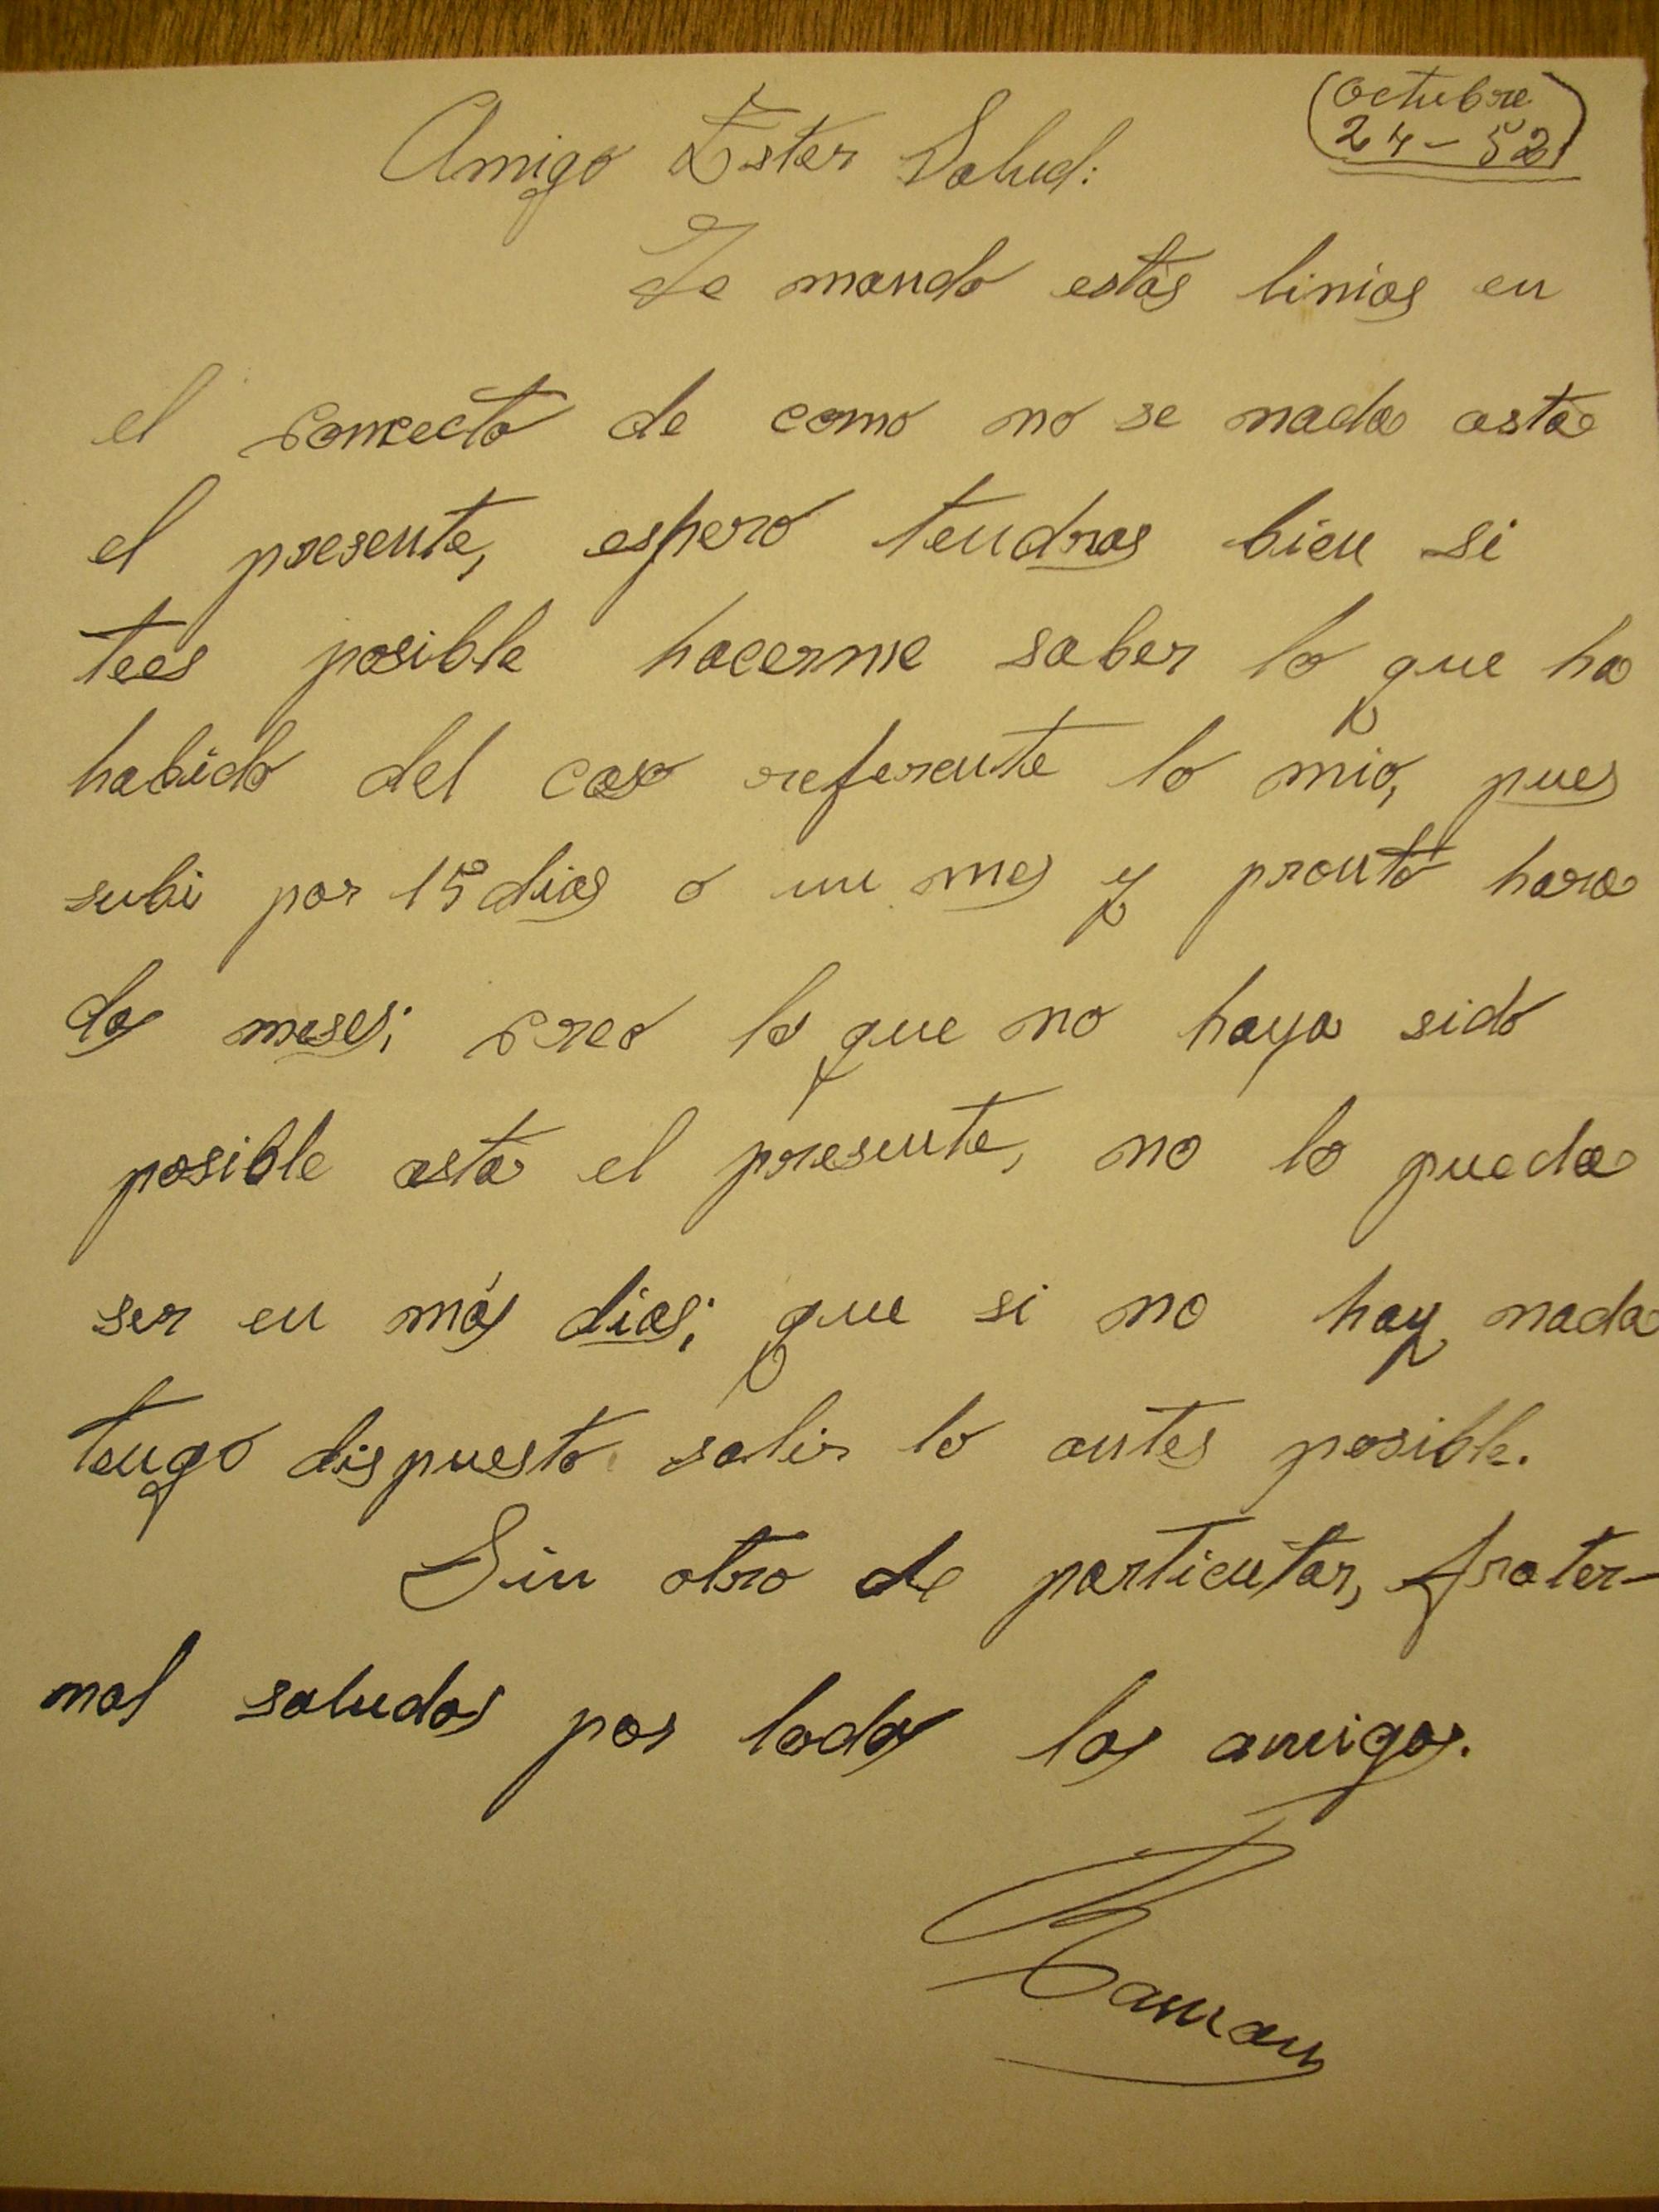 Octubre
24-52
Amigo Ester Salud:
Te mando estas linias en
el concecto de como no se nada asta
el presente, espero tendras bien si
tees posible hacerme saber lo que ha
habido del caso referente lo mio, pues
subi por 15 dias o un mes y pronto hara
dos meses; creo lo que no haya sido
posible asta el presente, no lo pueda
ser en más dias; que si no hay nada
tengo dispuesto salir lo antes posible.
Sin otro de particular, frater-
nal saludos por todos los amigos.